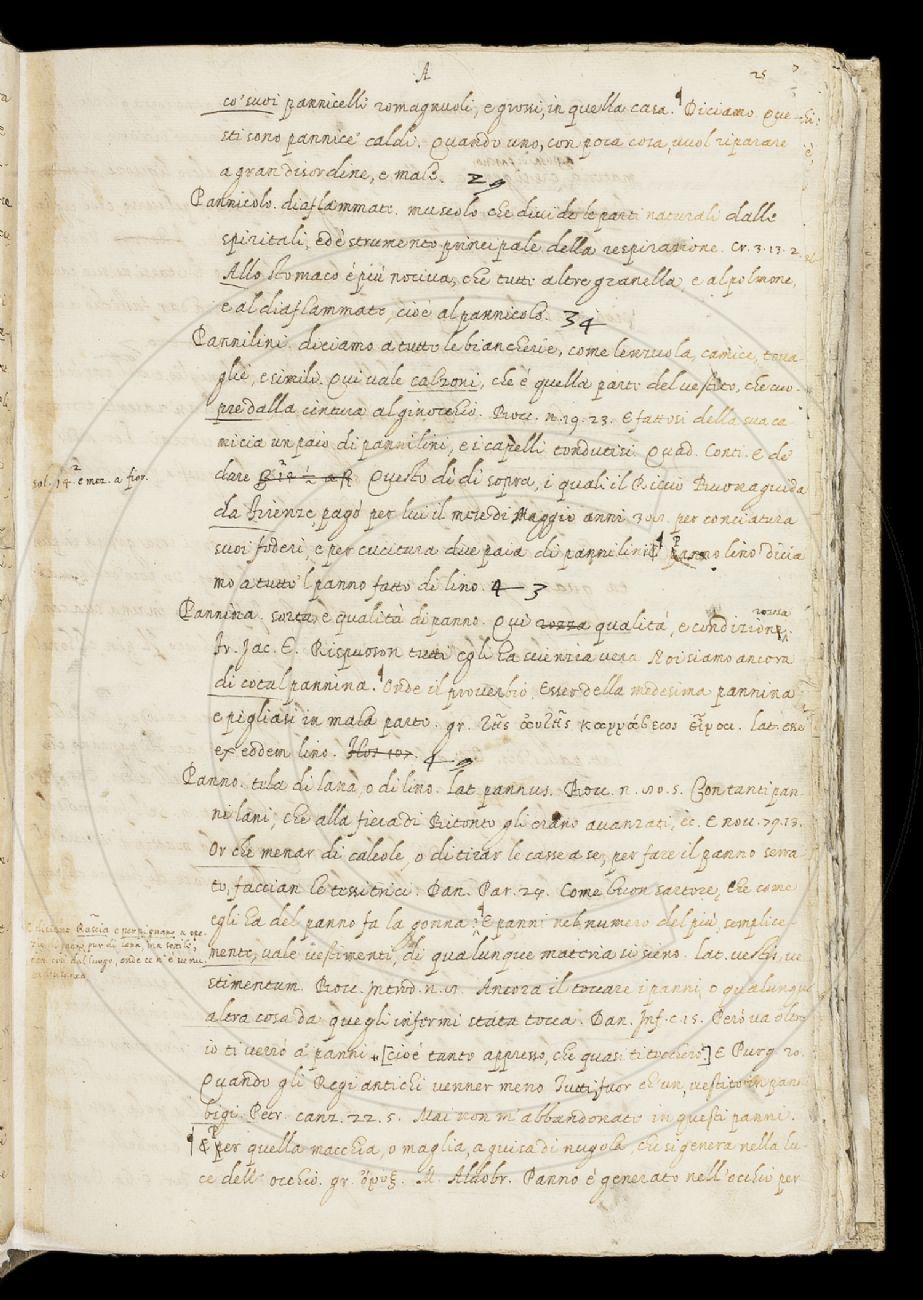 A
25
co' suoi pannicelli romagnuoli, e grossi, in quella casa. ¶ Diciamo Que-
sti sono pannice' caldi. Quando uno, con poca cosa, vuol riparare
a gran disordine, e male.
Pannicolo. diaflammate. muscolo che divide le parti naturali dalle
spiritali, ed è strumento principale della respirazione. Cr. 3. 13. 2.
Allo stomaco è più nociva, che tutte altre granella e al polmone,
e al diaflammate, cioè al pannicolo. 34
Pannilini. diciamo a tutte le biancherie, come lenzuola, camice, tova-
glie, e simili. Qui vale calzoni, che è quella parte del vestito, che cuo-
pre dalla cintura al ginocchio. Bocc. n. 19. 23. E fattosi della sua ca
micia un paio di pannilini, e i capelli tondutisi Quad. Conti. E de
dare Questo dì di sopra, i quali il Riccio Buonaguida
sol. 14. e mez. a fior.
da Firenze, pagò per lui il mese di Maggio anni per conciatura
suoi foderi, e per cucitura due paia di pannilini ¶ panno lino dicia
mo a tutto 'l panno fatto di lino. 4 3
Pannina. sorta, e qualità di panno. Qui rozza qualità, e condizione
rozza
Fr. Jac. T. Risposon tutti egli ha scienzia vera Noi siamo ancora
di cotal pannina. ¶ Onde il proverbio, Esser della medesima pannina
e pigliasi in mala parte. gr. lat.
ex eodem lino.
Panno. tela di lana, o di lino. lat. pannus. Bocc. n. 5. Con tanti pan-
ni lani, che alla fiera di Bitonto gli erano avanzati, ec. E nov. 79. 13.
Or che menar di calcole, o di tirar le casse a se, per fare il panno serra
to, faccian le tessitrici. Dan. Par. Come buon sartore, Che come
egli ha del panno fa la gonna. ¶ E panni nel numero del più, semplice-
mente, vale vestimenti, di qualunque materia si sieno. lat. vestis, ve
stimentum. Bocc. Introd. n. Ancora il toccare i panni, o qualunque
altra cosa da quegli infermi stata tocca. Dan. Inf. c. 15. Però va oltre
io ti verrò a' panni [cioè tanto appresso, che quasi ti toccherò] E Purg. 20.
Quando gli Regi antichi venner meno Tutti, fuor ch'un, vestito in pann
bigi. Petr. canz. 22. 5. Mai non m' abbandonate in questi panni.
¶ E per quella macchia, o maglia, a guisa di nugola, che si genera nella lu-
ce dell' occhio. gr. M. Aldobr. Panno è generato nell' occhio per